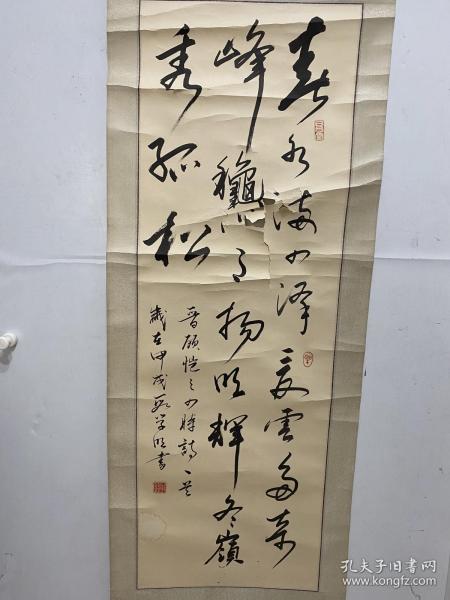 春水满四泽夏雲多奇
峰龝月扬明辉冬嶺
秀孤松
晉顾愷之四時詩一首
歲在甲戌段学明書
孔夫子旧书网
www.kongfz.com